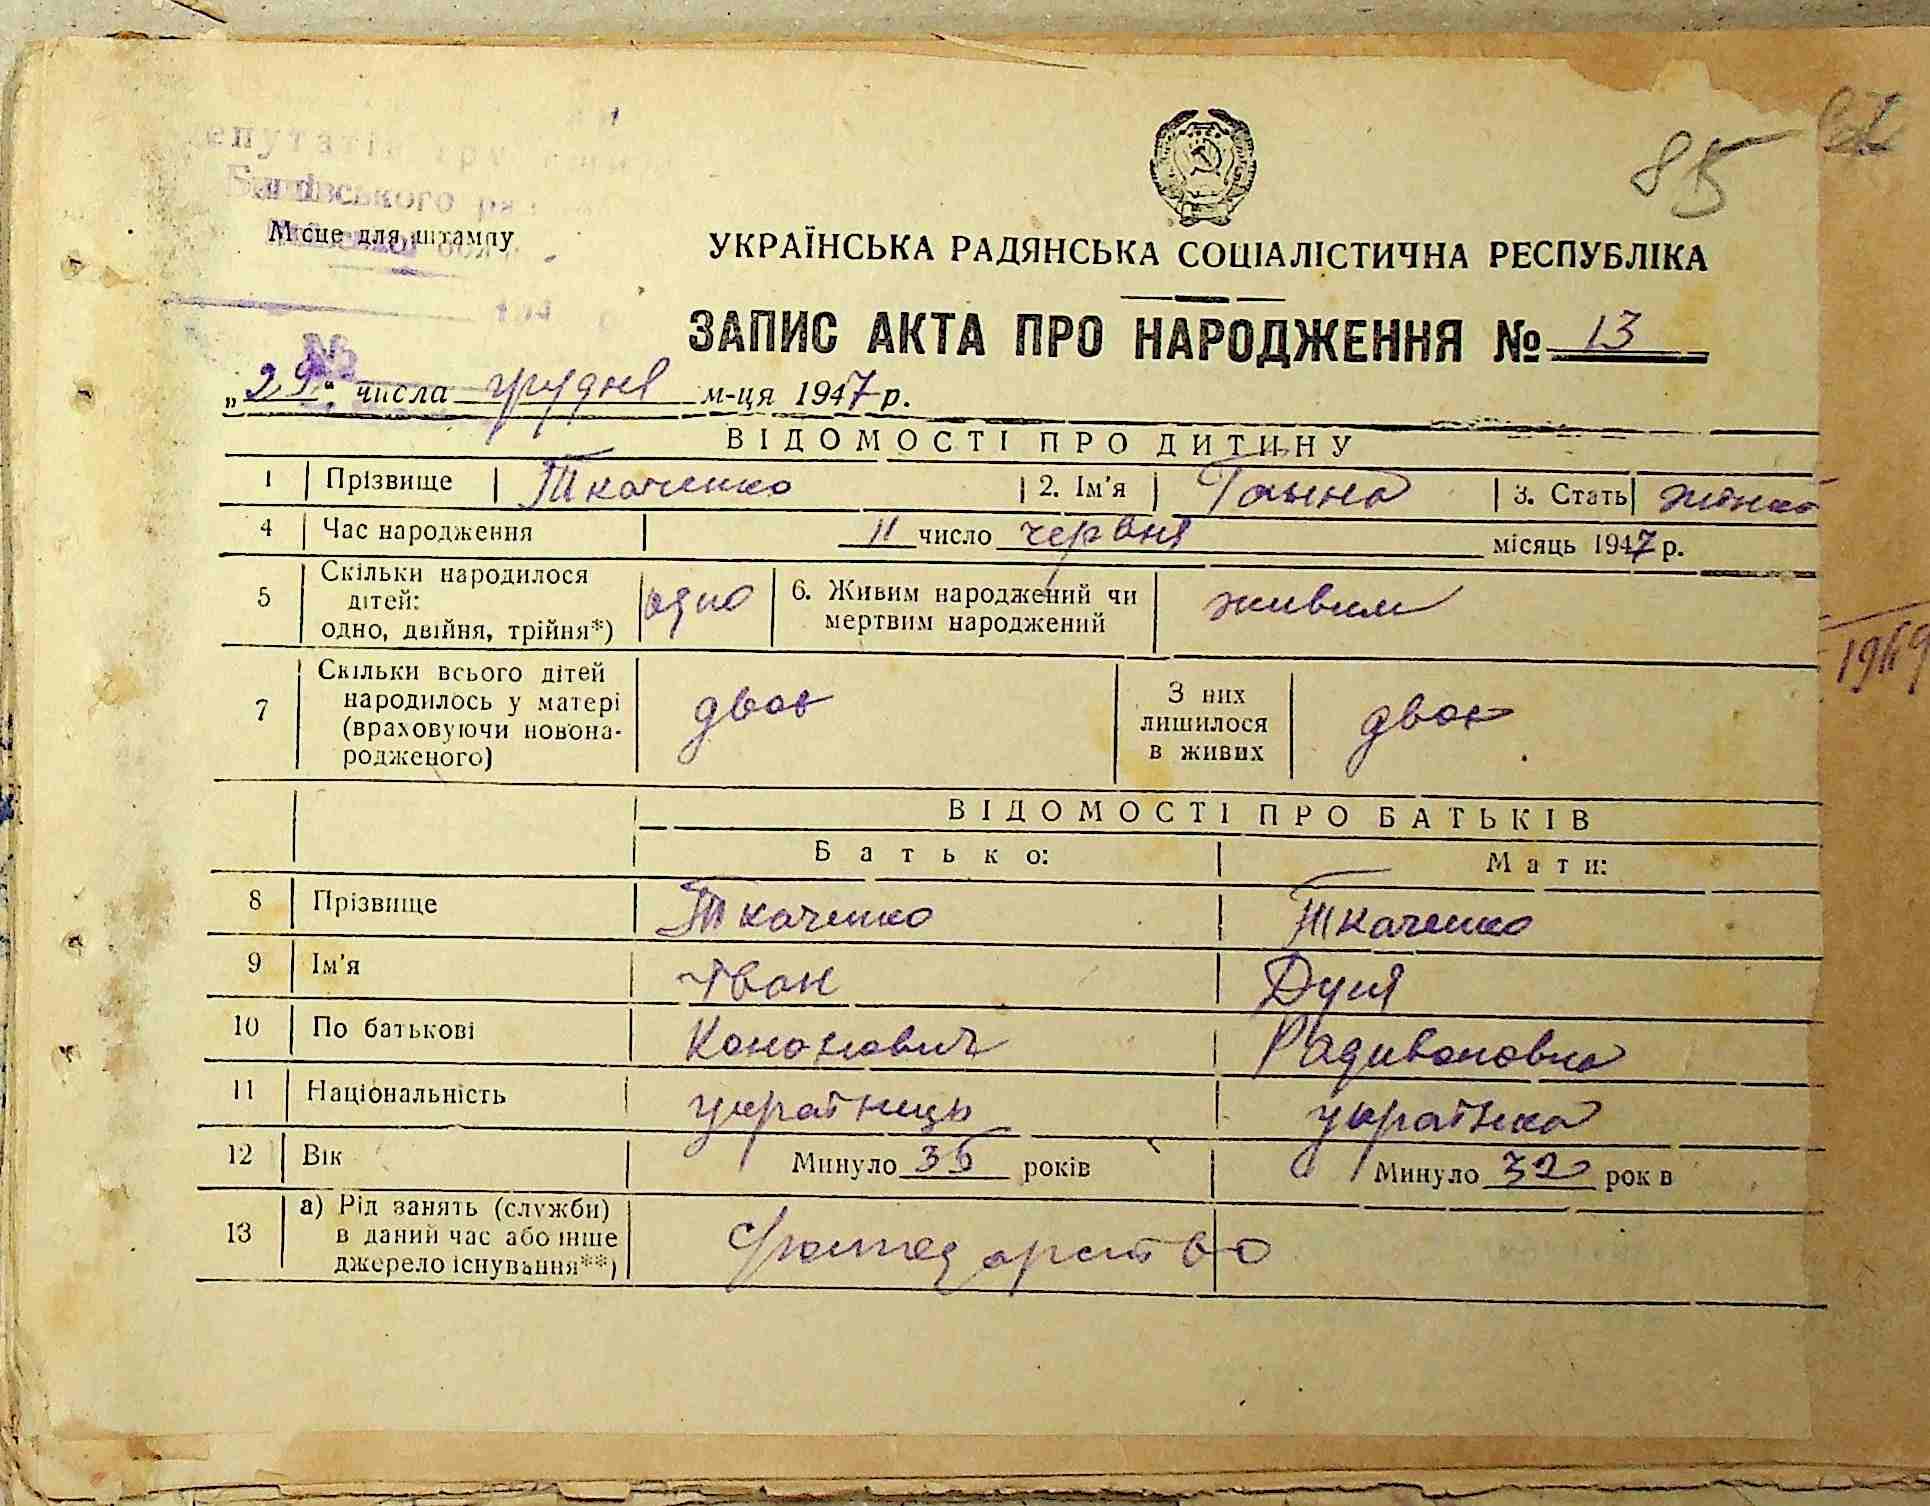 85
Місце для штампу
УКРАЇНСЬКА РАДЯНСЬКА СОЦІАЛІСТИЧНА РЕСПУБЛІКА
ЗАПИС АКТА ПРО НАРОДЖЕННЯ № 13
№
„29“ числа грудня м-ця 1947 р.
ВІДОМОСТІ ПРО ДИТИНУ
1 Прізвище Ткаченко 2. Ім'я Ганна 3. Стать
4 Час народження 11 число червня місяць 1947 р.
5 Скільки народилося дітей: одно, двійня, трійня*) одно 6. Живим народжений чи мертвим народжений живим
7 Скільки всього дітей народилось у матері (враховуючи новонародженого) двоє З них лишилося в живих двоє
1949
ВІДОМОСТІ ПРО БАТЬКІВ
Батько: Мати:
8 Прізвище Ткаченко Ткаченко
9 Ім'я Іван Дуня
10 По батькові Кононович Радивоновна
11 Національність українець українка
12 Вік Минуло 36 років Минуло 32 рок в
13 а) Рід занять (служби) в даний час або інше джерело існування**)